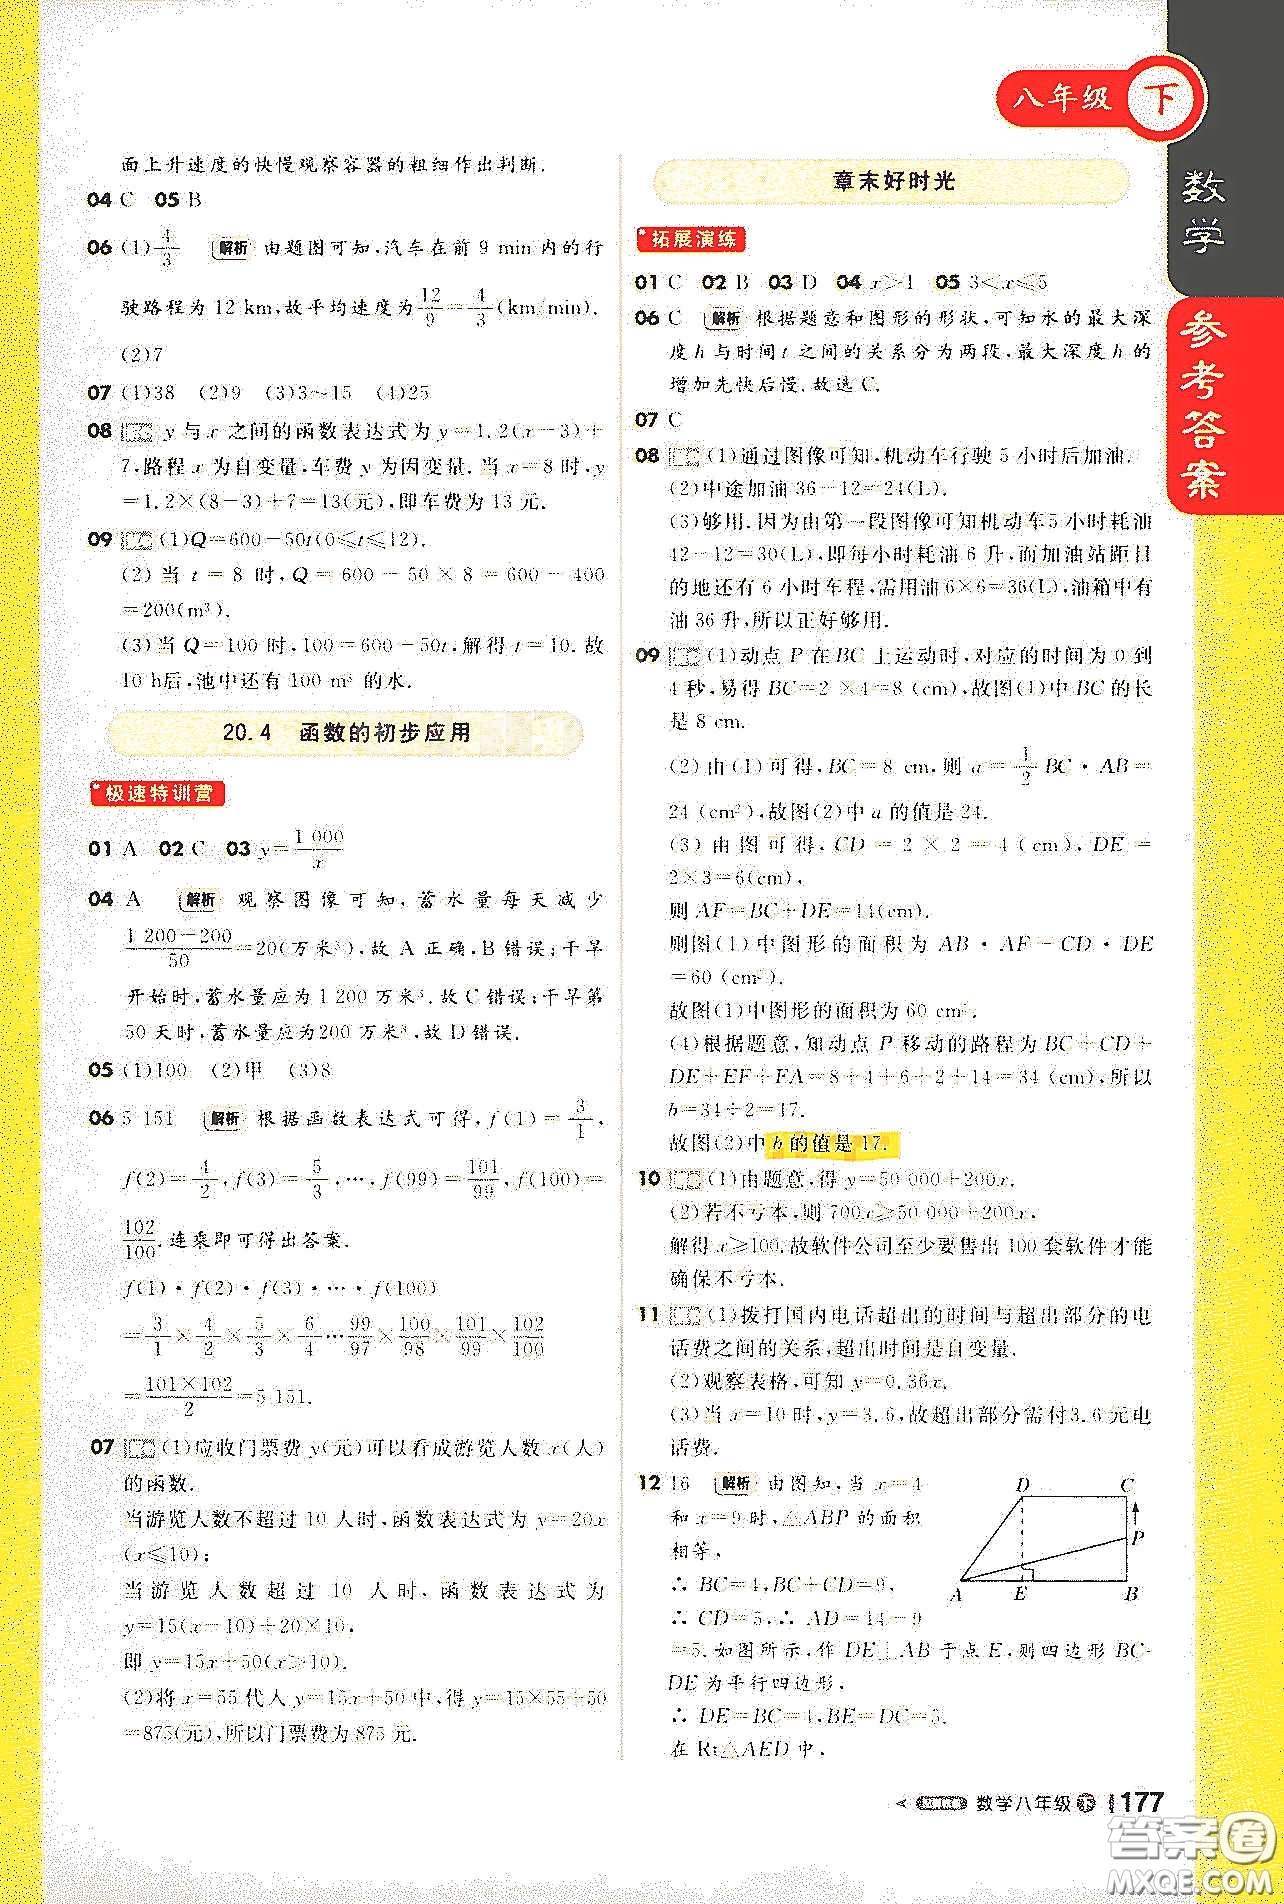 八年级 下
数学
参考答案
面上升速度的快慢观察容器的粗细作出判断.
04 C 05 B
06 (1)4/3 解析 由题图可知,汽车在前 9 min内的行
驶路程为 12 km,故平均速度为12/9=4/3(km/min).
(2)7
07 (1)38 (2)9 (3)3~15 (4)25
08 y 与 x 之间的函数表达式为 y=1.2(x-3)+
7,路程 x 为自变量,车费 y 为因变量.当 x=8 时,y
=1.2×(8-3)+7=13(元),即车费为 13 元.
09 (1)Q=600-50t(0≤t≤12).
(2)当 t=8 时,Q=600-50×8=600-400
=200(m³).
(3)当 Q=100 时,100=600-50t,解得 t=10.故
10 h后,池中还有 100 m³ 的水.
20.4 函数的初步应用
极速特训营
01 A 02 C 03 y=1 000/x
04 A 解析 观察图像可知,蓄水量每天减少
(1 200-200)/50=20(万米³),故 A 正确,B 错误;干旱
开始时,蓄水量应为1 200 万米³.故 C 错误;干旱第
50 天时,蓄水量应为200 万米³,故 D 错误.
05 (1)100 (2)甲 (3)8
06 5 151 解析 根据函数表达式可得,f(1)=3/1,
f(2)=4/2,f(3)=5/3,…,f(99)=101/99,f(100)=
102/100.连乘即可得出答案.
f(1)·f(2)·f(3)·…·f(100)
=3/1×4/2×5/3×6/4×…99/97×100/98×101/99×102/100
=(101×102)/2=5 151.
07 (1)应收门票费 y(元)可以看成游览人数 x(人)
的函数.
当游览人数不超过 10 人时,函数表达式为 y=20x
(x≤10);
当游览人数超过 10 人时,函数表达式为
y=15(x-10)+20×10,
即 y=15x+50(x>10).
(2)将 x=55 代入 y=15x+50 中,得 y=15×55+50
=875(元),所以门票费为 875 元.
章末好时光
拓展演练
01 C 02 B 03 D 04 x>1 05 3<x≤5
06 C 解析 根据题意和图形的形状,可知水的最大深
度 h 与时间 t 之间的关系分为两段,最大深度 h 的
增加先快后慢.故选 C.
07 C
08 (1)通过图像可知,机动车行驶 5 小时后加油.
(2)中途加油 36-12=24(L).
(3)够用.因为由第一段图像可知机动车5 小时耗油
42-12=30(L),即每小时耗油 6 升,而加油站距目
的地还有 6 小时车程,需用油 6×6=36(L),油箱中有
油 36 升,所以正好够用.
09 (1)动点 P 在 BC 上运动时,对应的时间为 0 到
4 秒,易得 BC=2×4=8(cm),故图(1)中BC 的长
是 8 cm.
(2)由(1)可得,BC=8 cm,则 a=1/2 BC·AB=
24(cm²),故图(2)中 a 的值是 24.
(3)由图可得,CD=2×2=4(cm),DE=
2×3=6(cm),
则 AF=BC+DE=14(cm).
则图(1)中图形的面积为 AB·AF-CD·DE
=60(cm²).
故图(1)中图形的面积为 60 cm².
(4)根据题意,知动点 P 移动的路程为 BC+CD+
DE+EF+FA=8+4+6+2+14=34(cm),所以
b=34÷2=17.
故图(2)中 b 的值是 17.
10 (1)由题意,得 y=50 000+200x.
(2)若不亏本,则 700x≥50 000+200x,
解得 x≥100.故软件公司至少要售出 100 套软件才能
确保不亏本.
11 (1)拨打国内电话超出的时间与超出部分的电
话费之间的关系,超出时间是自变量.
(2)观察表格,可知 y=0.36x.
(3)当 x=10 时,y=3.6,故超出部分需付3.6 元电
话费.
12 16 解析 由图知,当 x=4
和 x=9时,△ABP 的面积
相等,
∴ BC=4,BC+CD=9,
∴ CD=5,∴ AD=14-9
=5.如图所示,作 DE⊥AB 于点 E,则四边形 BC-
DE 为平行四边形,
∴ DE=BC=4,BE=DC=5.
在 Rt△AED 中,
D C
P
A E B
数学八年级 下 177
答案圈
MXQE.COM